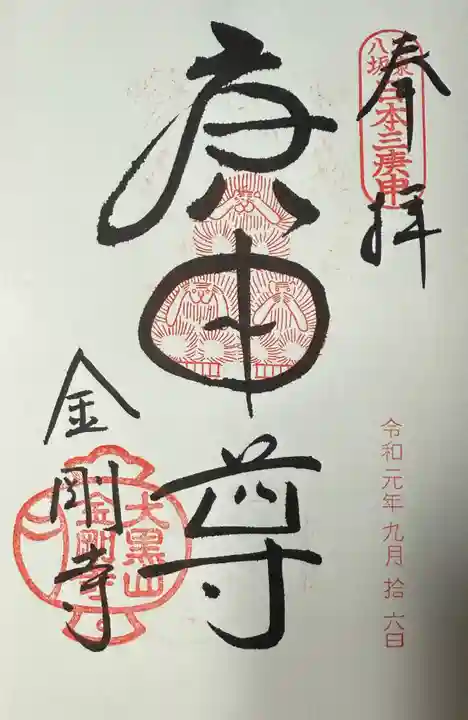 奉拝
八坂
日本三庚申
庚申尊
令和元年九月拾六日
金剛寺
大黒山
金剛寺